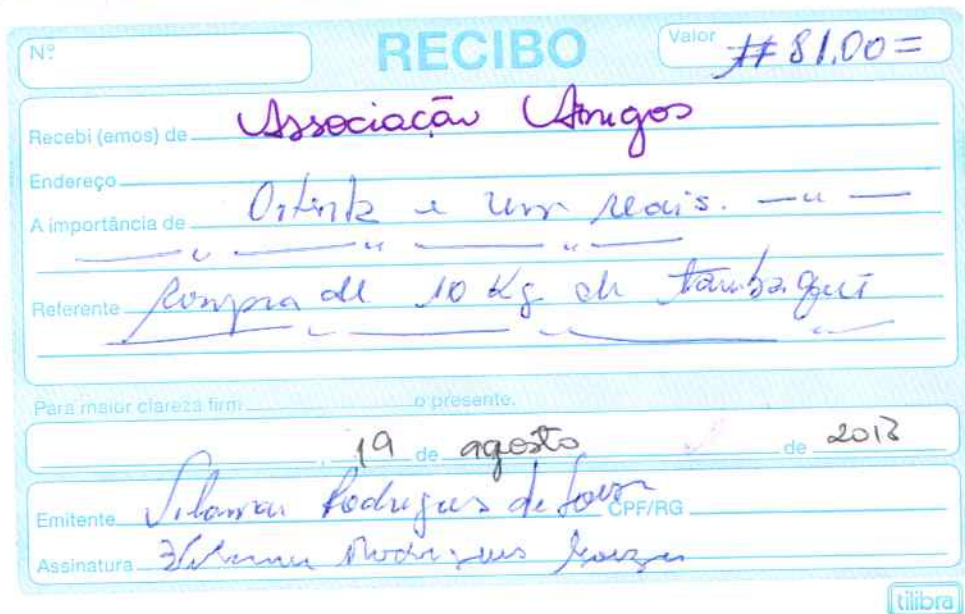 Nº RECIBO Valor # 81,00=
Recebi (emos) de Associação Amigos
Endereço
A importância de Oitenta e um reais. — " —
— " — " — " —
Referente Compra de 10 Kg de tambaqui
Para maior clareza firm o presente.
, 19 de agosto de 2013
Emitente Rodrigues de Souza CPF/RG
Assinatura Rodrigues Souza
tilibra